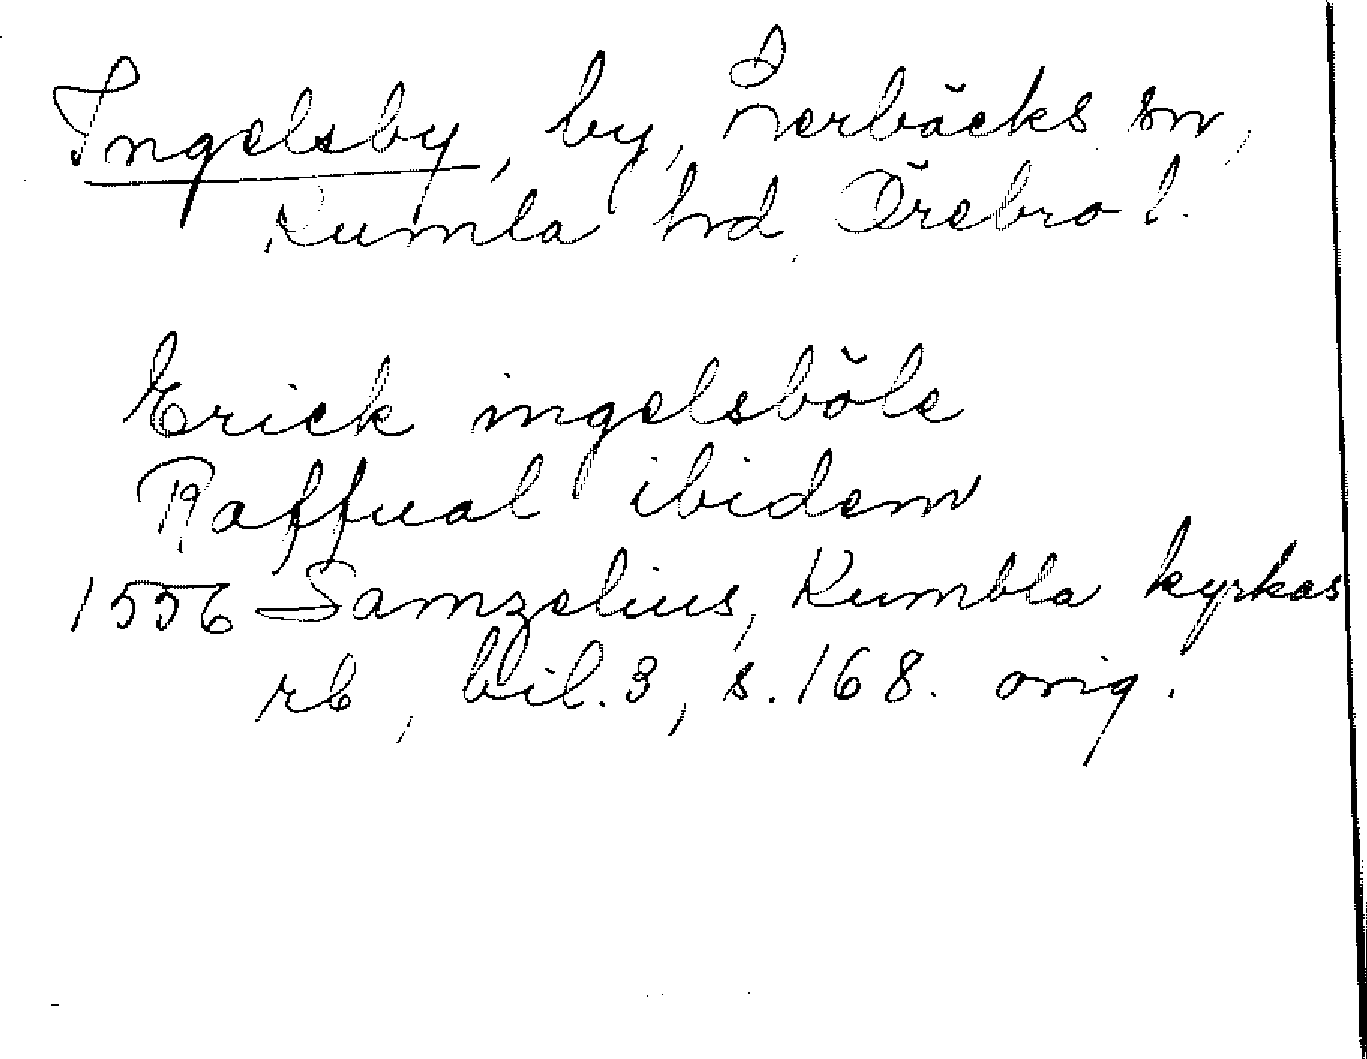 Ingelsby, by, Ekerbäcks sn,
Kumla hd, Örebro l.
Erick ingelsböle
Raffual ibidem
1556 Samzelius, Kumbla kyrkas
rb, bil. 3, s. 168. orig.